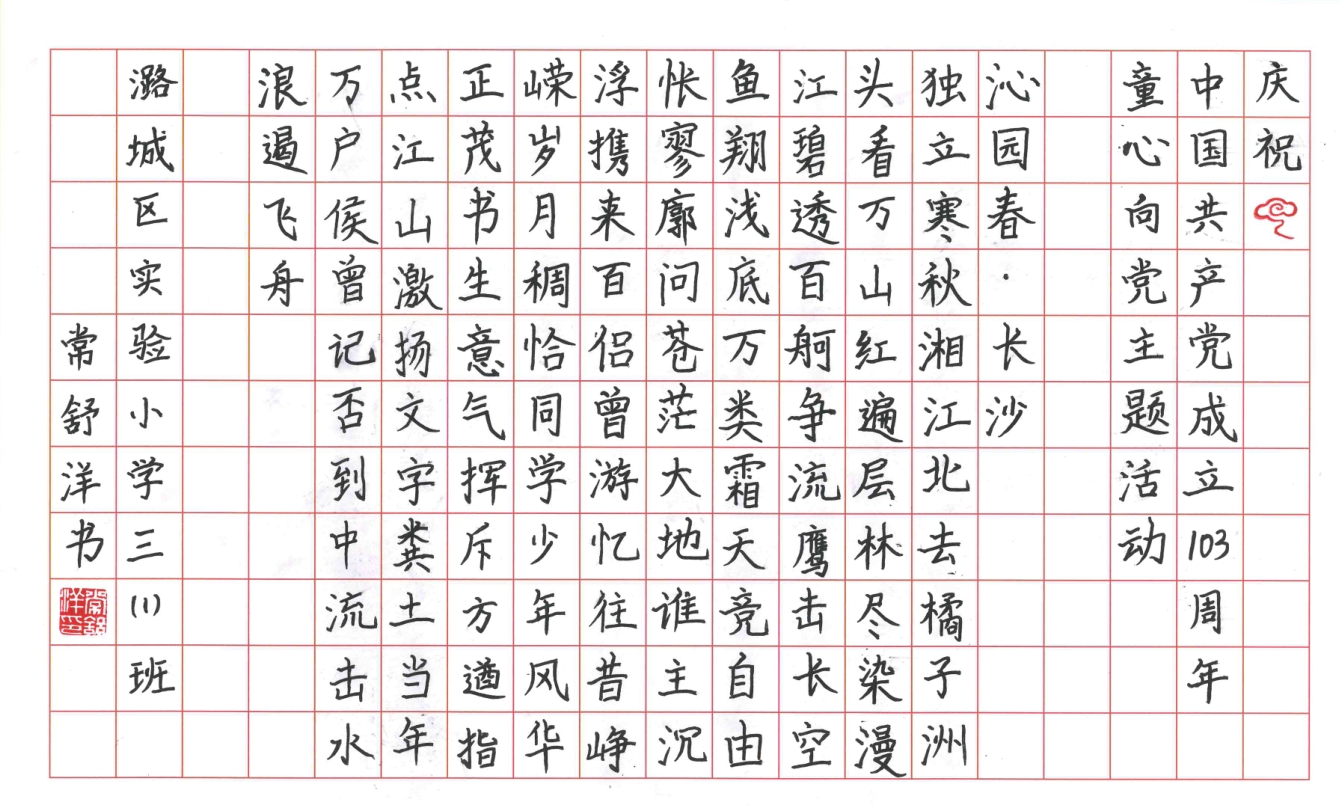 庆祝
中国共产党成立103周年
童心向党主题活动
沁园春·长沙
独立寒秋湘江北去橘子洲
头看万山红遍层林尽染漫
江碧透百舸争流鹰击长空
鱼翔浅底万类霜天竞自由
怅寥廓问苍茫大地谁主沉
浮携来百侣曾游忆往昔峥
嵘岁月稠恰同学少年风华
正茂书生意气挥斥方遒指
点江山激扬文字粪土当年
万户侯曾记否到中流击水
浪遏飞舟
潞城区实验小学三(1)班
常舒洋书
常舒洋印